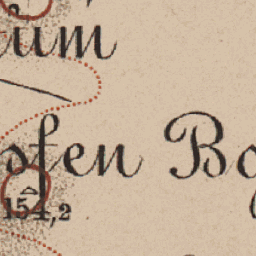 um
sten Bo
154,2